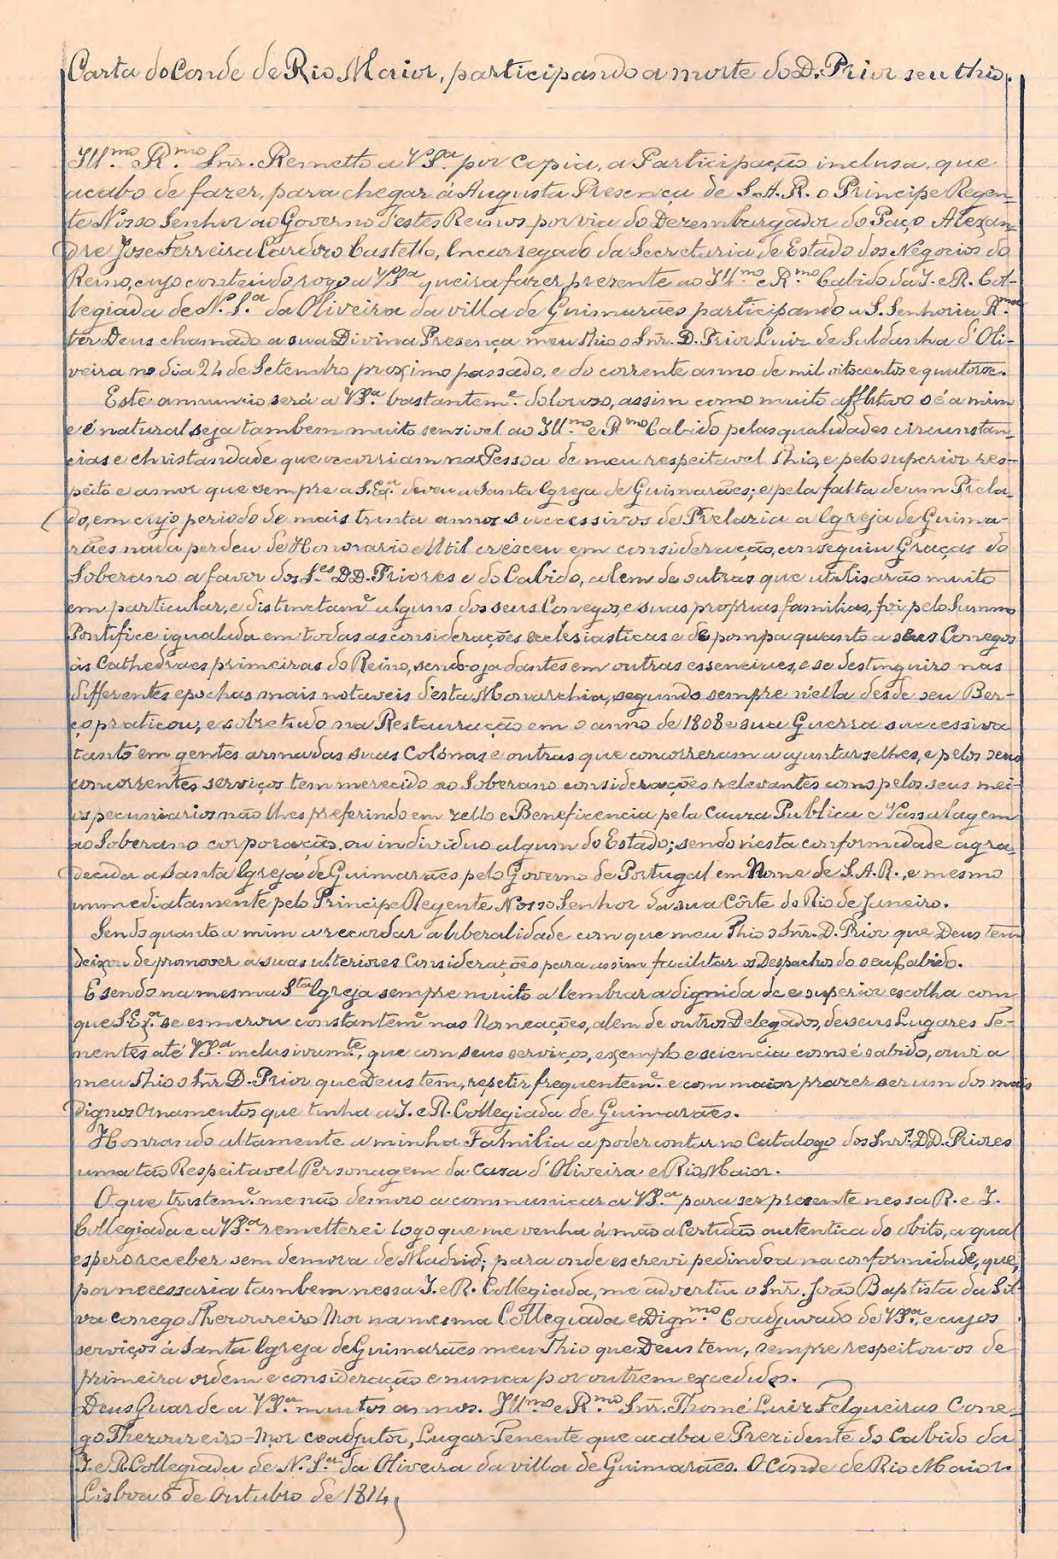 Carta do Conde de Rio Maior, participando a morte do D. Prior seu thio.
Ill.mo R.mo Snr. Remetto a VS.a por copia, a Participação inclusa, que
acabo de fazer, para chegar á Augusta Presença de S.A.R. o Principe Regen-
te Nosso Senhor ao Governo d'estes Reinos por via do Dezembargador do Paço Alexan-
dre Jose Ferreira Cardozo Castello, Encarregado da Secretaria de Estado dos Negocios do
Reino, cujo conteúdo rogo a VS.a queira fazer prezente ao Ill.mo e R.mo Cabido da I. e R. Col-
legiada de N. S.a da Oliveira da villa de Guimarães participando a S. Senhoria R.ma
ter Deus chamado a sua Divina Presença meu thio o Snr. D. Prior Luiz de Saldanha d'Oli-
veira no dia 24 de Setembro proximo passado, e do corrente anno de mil oitocentos e quatorze.
Este annuncio será a VS.a bastantem.e doloroso, assim como muito afflitivo o é a mim
e é natural seja tambem muito sensivel ao Ill.mo e R.mo Cabido pelas qualidades circunstan-
cias e christandade que occorriam na Pessoa de meu respeitavel Thio, e pelo superior res-
peito e amor que sempre a S. Ex.a deveu a Santa Igreja de Guimarães; e pela falta de um Prela-
do, em cujo periodo de mais trinta annos successivos de Prelazia a Igreja de Guima-
rães nada perdeu de Honorario e Util cresceu em consideração, conseguiu Graças do
Soberano a favor dos S.es DD. Priores e do Cabido, alem de outras que utilisarão muito
em particular, e distinctam.e alguns dos seus Conegos, e suas proprias familias, foi pelo Summo
Pontifice igualada em todas as considerações ecclesiasticas e de pompa quanto a seus Conegos
ás Cathedraes primeiras do Reino, sendo-o ja dantes em outras essenciaes, e se destinguiro nas
differentes epochas mais notaveis d'esta Monarchia, segundo sempre n'ella desde seu Ber-
ço praticou; e sobretudo na Restauração em o anno de 1808 e sua Guerra successiva
tanto em gentes armadas suas Colonas e outras que concorreram a ajuntarselhes, e pelos seus
concorrentes serviços tem merecido ao Soberano considerações relevantes como pelos seus mei-
os pecuniarios não lhes preferindo em zello e Beneficencia pela Cauza Publica e Vassalagem
ao Soberano corporação, ou individuo algum do Estado; sendo n'esta conformidade agra-
decida a Santa Igreja de Guimarães pelo Governo de Portugal em Nome de S.A.R., e mesmo
immediatamente pelo Principe Regente Nosso Senhor da sua Côrte do Rio de Janeiro.
Sendo quanto a mim a recordar a liberalidade com que meu Thio o Snr. D. Prior que Deus tem
deixou de promover a suas ulteriores Considerações para assim facilitar os Despachos do seu Cabido.
E sendo na mesma S.ta Igreja sempre muito a lembrar a dignidade e superior escolha com
que S. Ex.a se esmerou constantem.e nas Nomeações, alem de outros Delegados, de seus Lugares Te-
nentes até VS.a inclusivam.te, que com seus serviços, exemplo e sciencia como é sabido, ouvi a
meu thio o Snr. D. Prior que Deus tem, repetir frequentem.e e com maior prazer ser um dos mais
dignos Ornamentos que tinha a I. e R. Collegiada de Guimarães.
Honrando altamente a minha Familia a poder contar no Catalogo dos Snr.s DD. Priores
uma tão Respeitavel Personagem da Casa d'Oliveira e Rio Maior.
O que tristem.e me não demoro a communicar a VS.a para ser presente nessa R. e I.
Collegiada e a VS.a remetterei logo que me venha á mão a Certidão autentica do obito, a qual
espero receber sem demora de Madrid; para onde escrevi pedindo-a na conformidade, que,
por necessaria tambem nessa I. e R. Collegiada, me advertiu o Snr. João Baptista da Sil-
va conego Thezoureiro Mor na mesma Collegiada e Dign.mo Coadjuvado de VS.a, e cujos
serviços á Santa Igreja de Guimarães meu Thio que Deus tem, sempre respeitou-os de
primeira ordem e consideração e nunca por outrem excedidos.
Deus Guarde a VS.a muitos annos. Ill.mo e R.mo Snr. Thomé Luiz Felgueiras Cone-
go Thezoureiro-Mor coadjutor, Lugar Tenente que acaba e Prezidente do Cabido da
I. e R. Collegiada de N. S.a da Oliveira da villa de Guimarães. O Conde de Rio Maior.
Lisboa 6 de Outubro de 1814